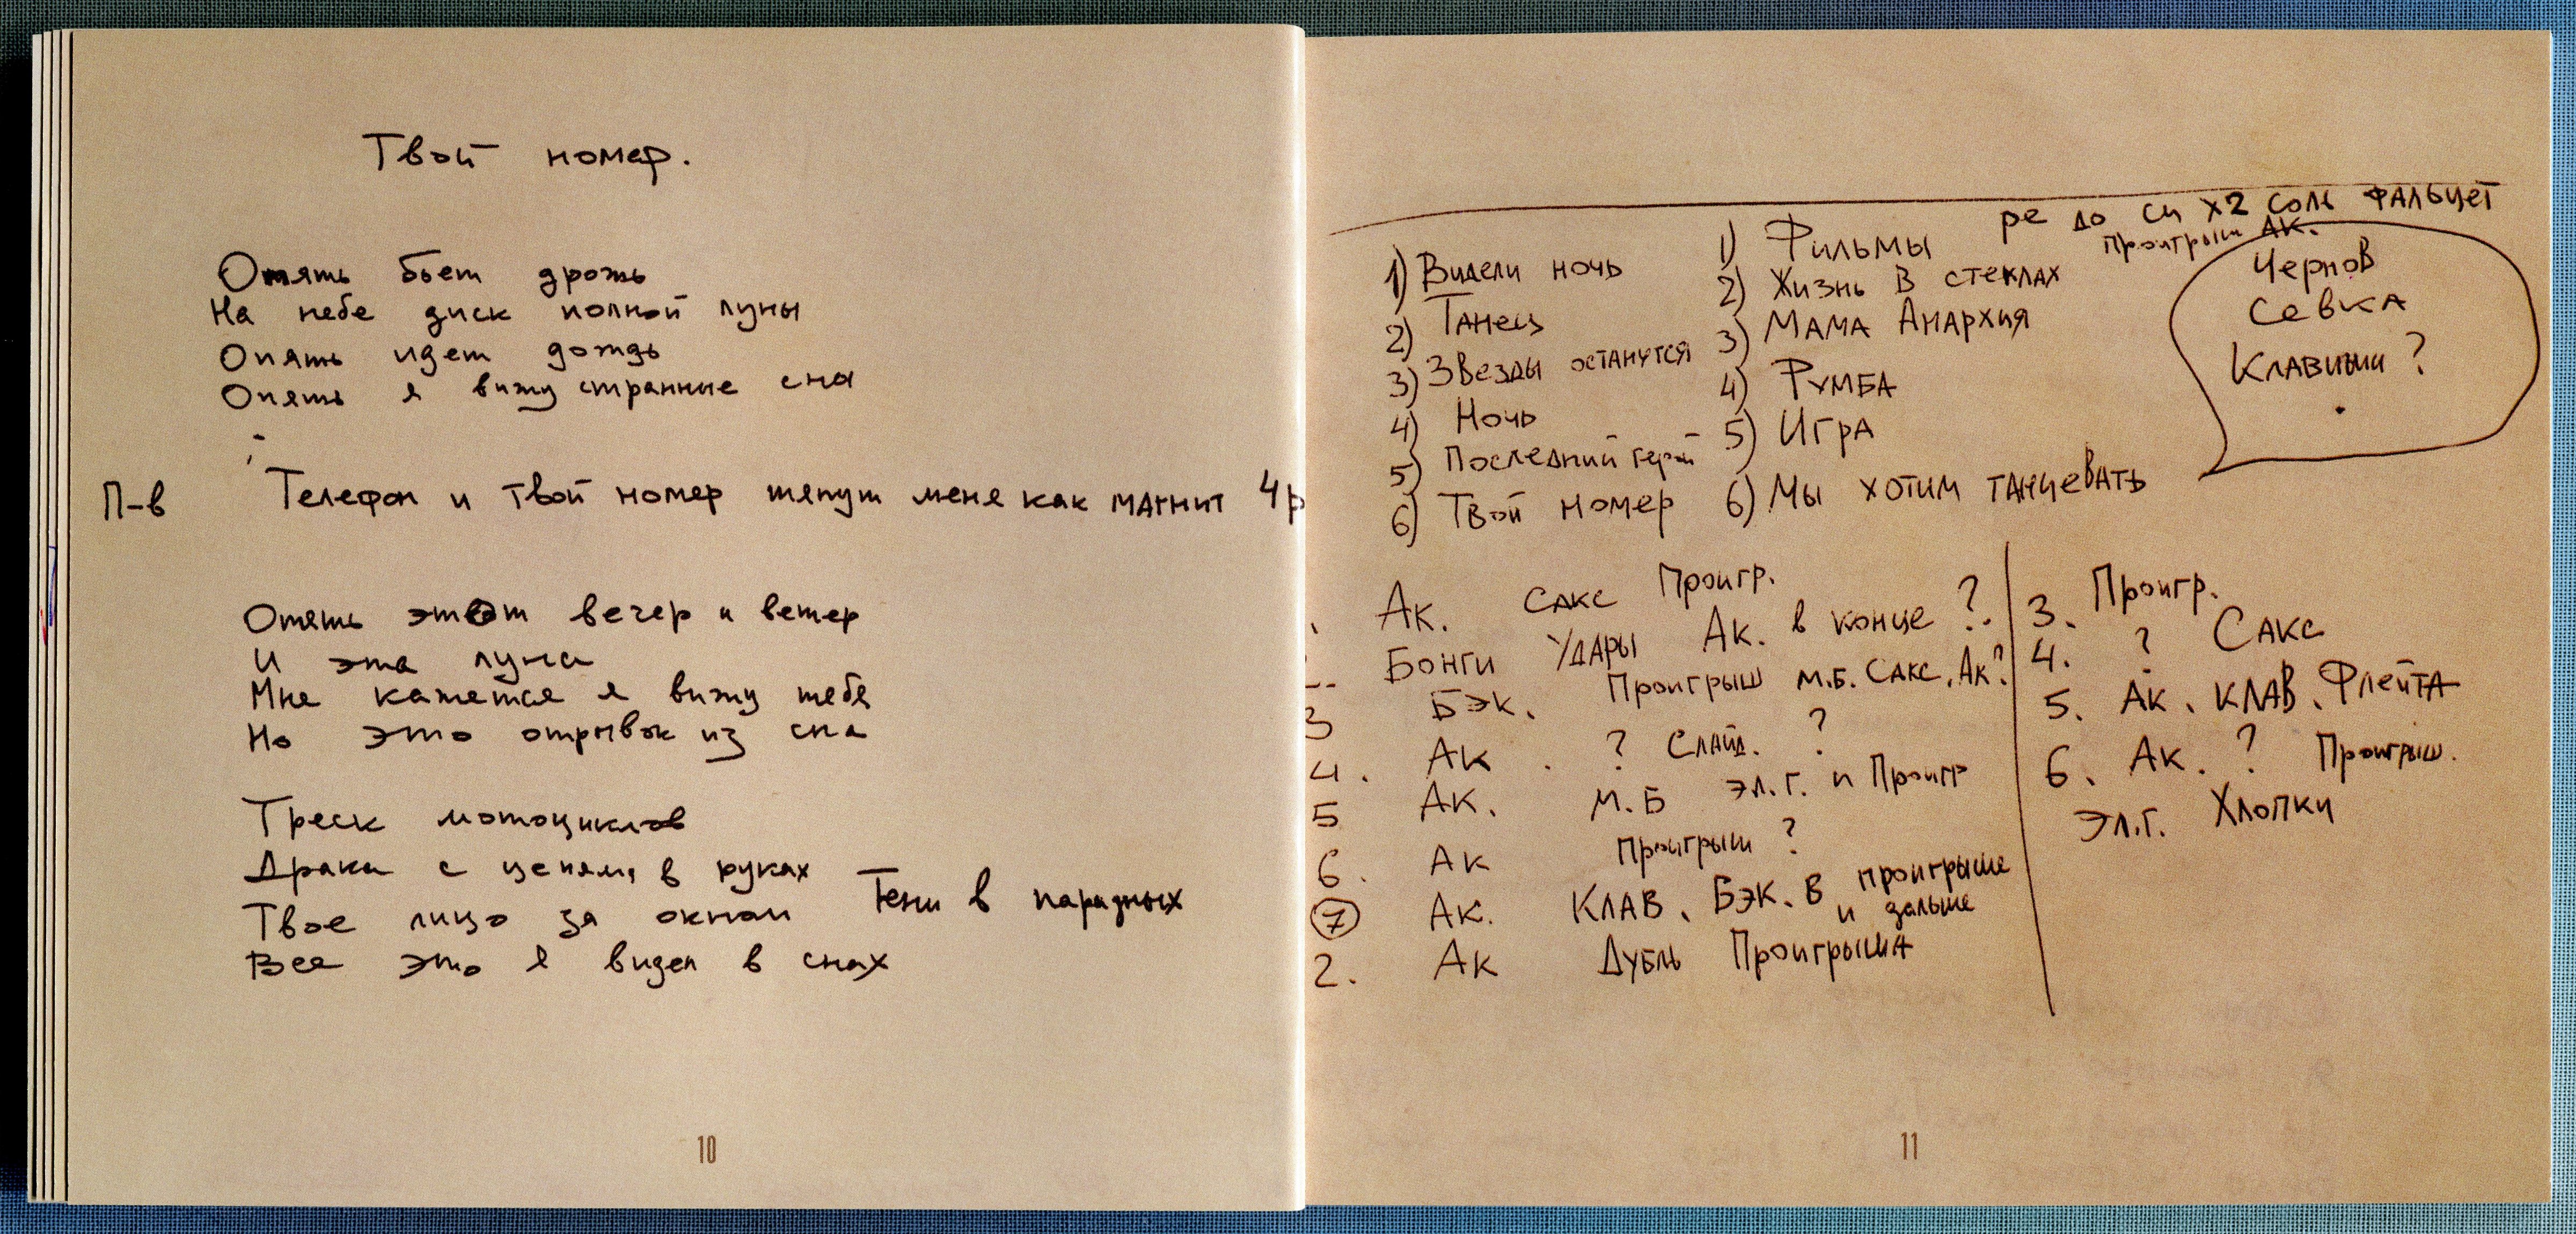 Твой номер.
Опять бьет дрожь
На небе диск полной луны
Опять идет дождь
Опять я вижу странные сны
П-в Телефон и твой номер тянут меня как магнит 4р
Опять этот вечер и ветер
И эта луна
Мне кажется я вижу тебя
Но это отрывок из сна
Треск мотоциклов
Драки с цепями в руках
Твое лицо за окном Тени в парадных
Все это я видел в снах
10
ре до си х2 соль фальцет
проигрыш Ак.
1) Видели ночь
2) Танец
3) Звезды останутся
4) Ночь
5) Последний герой
6) Твой номер
1) Фильмы
2) Жизнь в стеклах
3) Мама Анархия
4) Румба
5) Игра
6) Мы хотим танцевать
Чернов
Севка
Клавиши ?
Ак. Сакс Проигр.
Бонги Удары Ак. в конце ?
3 Бэк. Проигрыш М.Б. Сакс. Ак?
4. Ак . ? Слайд. ?
5 Ак. М.Б эл.г. и Проигр
6. Ак Проигрыш ?
7 Ак. Клав. Бэк. в проигрыше
и дальше
2. Ак Дубль Проигрыша
3. Проигр.
4. ? Сакс
5. Ак. клав. Флейта
6. Ак. ? Проигрыш.
Эл.г. Хлопки
11